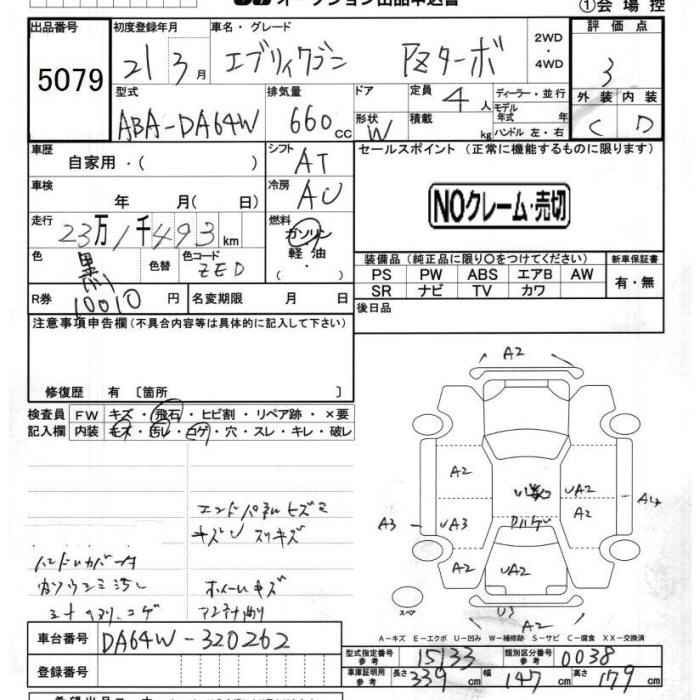 オークション出品申込書
①会場控
出品番号 5079
初度登録年月 21 3月
車名・グレード エブリィワゴン PZターボ
2WD・4WD
評価点 3
外装 内装 C D
型式 ABA-DA64W
排気量 660cc
ドア形状 W
定員 4人
積載 kg
ディーラー・並行
モデル年式 年
ハンドル 左・右
車歴 自家用・( )
シフト AT
車検 年 月( 日)
冷房 AC
走行 23万1千493km
燃料 ガソリン 軽油 ・( )
色 黒
色替
色コード ZED
R券 10010円
名変期限 月 日
セールスポイント(正常に機能するものに限ります)
NOクレーム・売切
装備品(純正品に限り○をつけてください)
PS PW ABS エアB AW
SR ナビ TV カワ
新車保証書 有・無
後日品
注意事項申告欄(不具合内容等は具体的に記入して下さい)
修復歴 有 〔箇所 〕
検査員記入欄
FW キズ・飛石・ヒビ割・リペア跡・×要
内装 キズ・汚レ・コゲ・穴・スレ・キレ・破レ
エンドパネルヒズミ
キズU スリキズ
ホイールキズ
A2
A2
UA2
A2
A4
A3
UA3
A2
UA2
A2
U3
A2
スペア
A-キズ E-エクボ U-凹み W-補修跡 S-サビ C-腐食 XX-交換済
車台番号 DA64W-320262
登録番号
型式指定番号 参考 15133
類別区分番号 参考 0038
車庫証明用 参考 長さ 339cm 幅 147cm 高さ 179cm